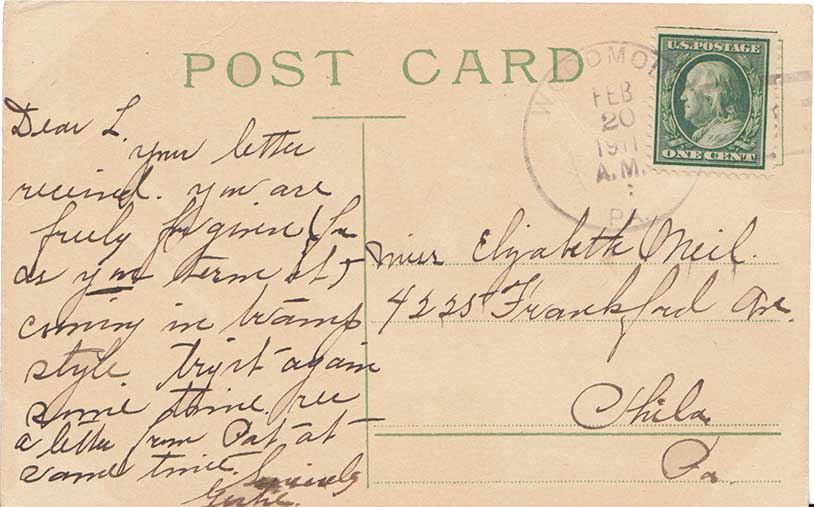 POST CARD
WOODMO
FEB
20
1911
A.M.
PA.
U.S. POSTAGE
ONE CENT
Dear L
your letter
received. you are
freely forgiven (
as you term it)
coming in tramp
style try it again
some time. rec
a letter from Pat at
same time.
Sincerely
Miss Elizabeth Neil.
4225 Frankford Ave.
Phila
Pa.